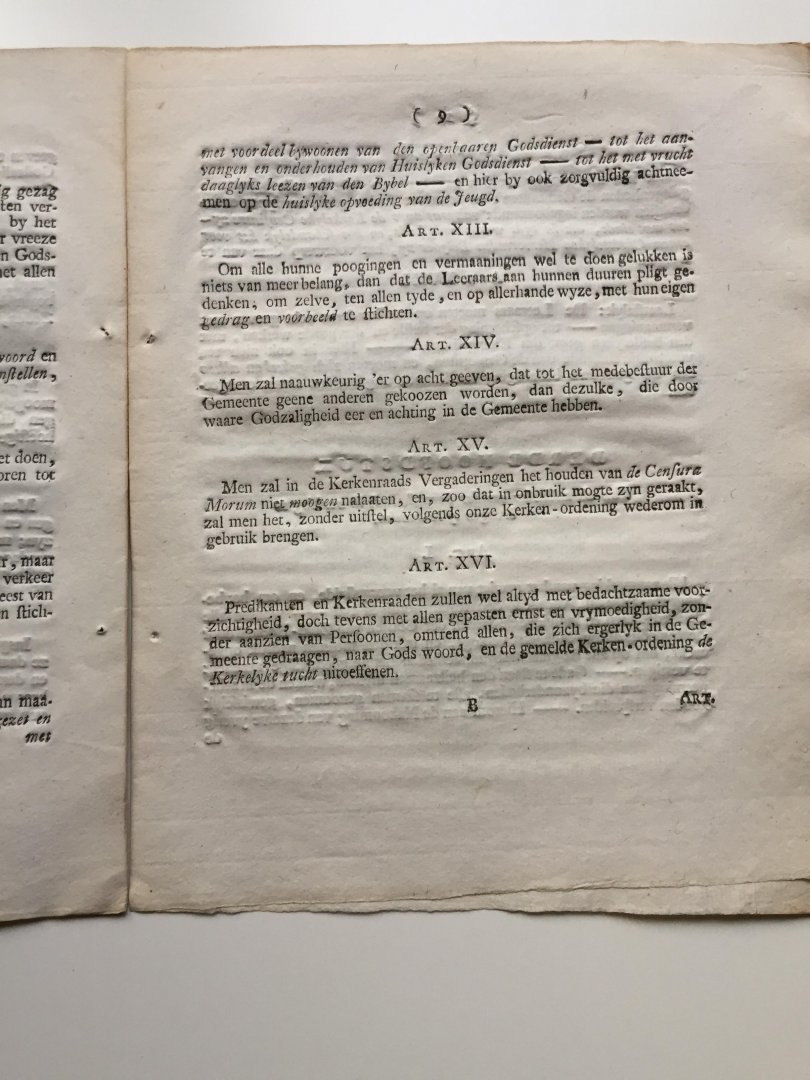 ig gezag
ten ver-
by het
r vreeze
n Gods-
met allen
woord en
nſtellen,
et doen,
oren tot
r, maar
verkeer
eest van
n ſtich-
an maa-
gezet en
met
( 9 )
met voordeel bywoonen van den openbaaren Godsdienst — tot het aan-
vangen en onderhouden van Huislyken Godsdienst — tot het met vrucht
daaglyks leezen van den Bybel — en hier by ook zorgvuldig achtnee-
men op de huislyke opvoeding van de Jeugd.
ART. XIII.
Om alle hunne poogingen en vermaaningen wel te doen gelukken is
niets van meer belang, dan dat de Leeraars aan hunnen duuren pligt ge-
denken; om zelve, ten allen tyde, en op allerhande wyze, met hun eigen
gedrag en voorbeeld te ſtichten.
ART. XIV.
Men zal naauwkeurig 'er op acht geeven, dat tot het medebeſtuur der
Gemeente geene anderen gekoozen worden, dan dezulke, die door
waare Godzaligheid eer en achting in de Gemeente hebben.
ART. XV.
Men zal in de Kerkenraads Vergaderingen het houden van de Cenſura
Morum niet moogen nalaaten, en, zoo dat in onbruik mogte zyn geraakt,
zal men het, zonder uitſtel, volgends onze Kerken-ordening wederom in
gebruik brengen.
ART. XVI.
Predikanten en Kerkenraaden zullen wel altyd met bedachtzaame voor-
zichtigheid, doch tevens met allen gepasten ernst en vrymoedigheid, zon-
der aanzien van Perſoonen, omtrend allen, die zich ergerlyk in de Ge-
meente gedraagen, naar Gods woord, en de gemelde Kerken-ordening de
Kerkelyke tucht uitoeffenen.
B
ART.